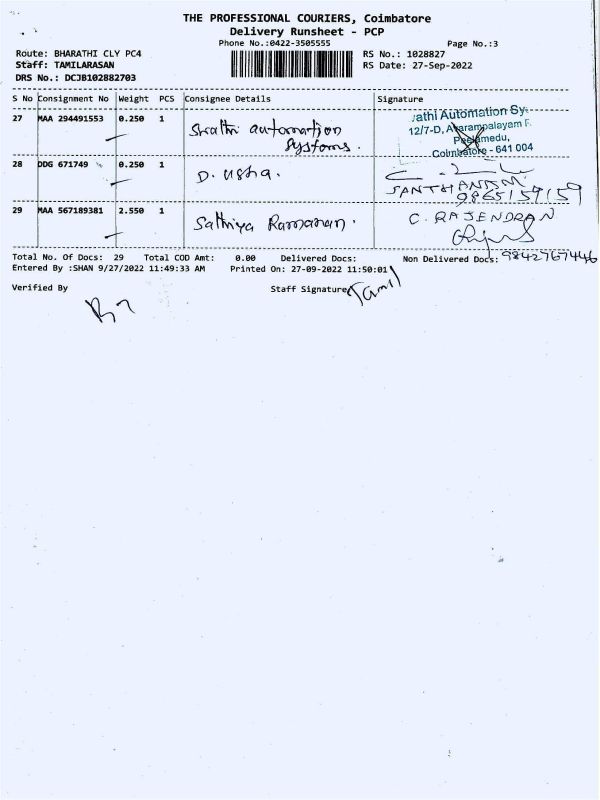 THE PROFESSIONAL COURIERS, Coimbatore
Delivery Runsheet - PCP
Phone No.:0422-3505555 Page No.:3
Route: BHARATHI CLY PC4 RS No.: 1028827
Staff: TAMILARASAN RS Date: 27-Sep-2022
DRS No.: DCJB102882703
S No Consignment No Weight PCS Consignee Details Signature
27 MAA 294491553 0.250 1 Swathi automation Systems. athi Automation Sy
12/7-D, Avarampalayam R
Peelamedu,
Coimbatore - 641 004
28 DDG 671749 0.250 1 D. Usha.
SANTHANAM
9865159159
29 MAA 567189381 2.550 1 Sathiya Ramanan. C. RAJENDRAN
Total No. Of Docs: 29 Total COD Amt: 0.00 Delivered Docs: Non Delivered Docs: 9842767446
Entered By :SHAN 9/27/2022 11:49:33 AM Printed On: 27-09-2022 11:50:01
Verified By Staff Signature Tamil